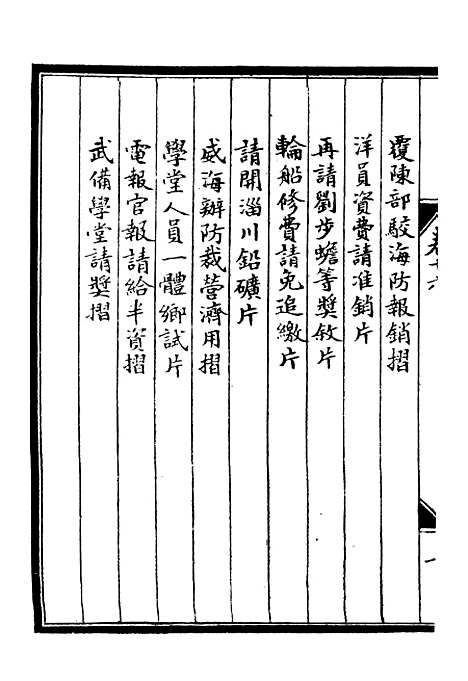 覆陳部駮海防報銷摺
洋員資費請准銷片
再請劉步蟾等獎敘片
輪船修費請免追繳片
請開淄川鉛礦片
威海辦防裁營濟用摺
學堂人員一體鄉試片
電報官報請給半資摺
武備學堂請獎摺